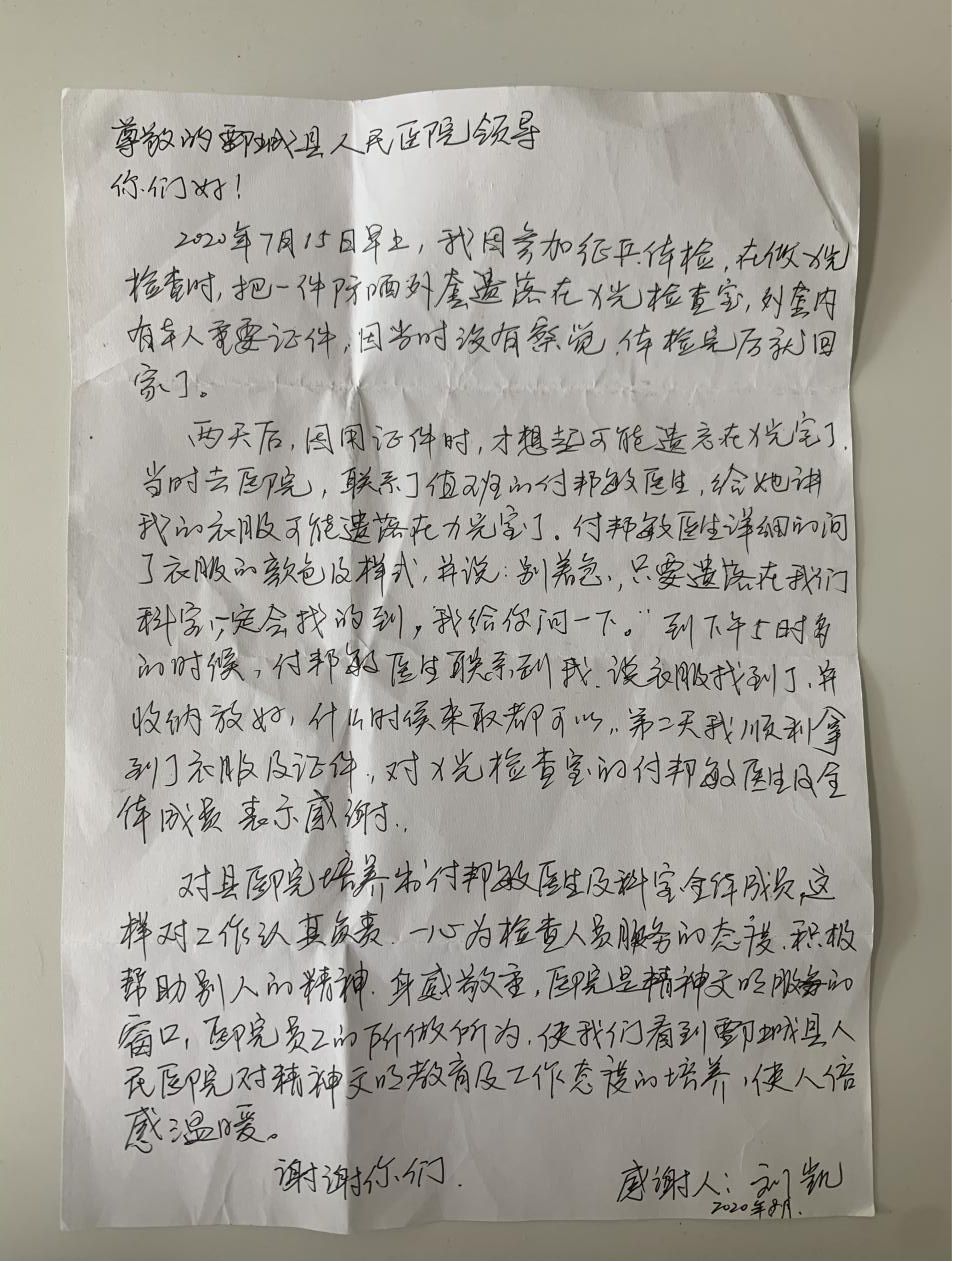 尊敬的鄄城县人民医院领导
你们好！
2020年7月15日早上，我因参加征兵体检，在做X光
检查时，把一件防晒外套遗落在X光检查室，外套内
有本人重要证件，因当时没有察觉，体检完后就回
家了。
两天后，因用证件时，才想起可能遗忘在X光室了，
当时去医院，联系了值班的付邦敏医生，给她讲
我的衣服可能遗落在X光室了。付邦敏医生详细的问
了衣服的颜色及样式，并说：别着急，只要遗落在我们
科室，一定会找的到，我给你问一下。”到下午5时多
的时候，付邦敏医生联系到我，说衣服找到了，并
收纳放好，什么时候来取都可以，第二天我顺利拿
到了衣服及证件，对X光检查室的付邦敏医生及全
体成员表示感谢，
对县医院培养出付邦敏医生及科室全体成员，这
样对工作认真负责，一心为检查人员服务的态度，积极
帮助别人的精神，身感敬重，医院是精神文明服务的
窗口，医院员工的所做所为，使我们看到鄄城县人
民医院对精神文明教育及工作态度的培养，使人倍
感温暖。
谢谢你们.
感谢人：刘凯
2020年8月.